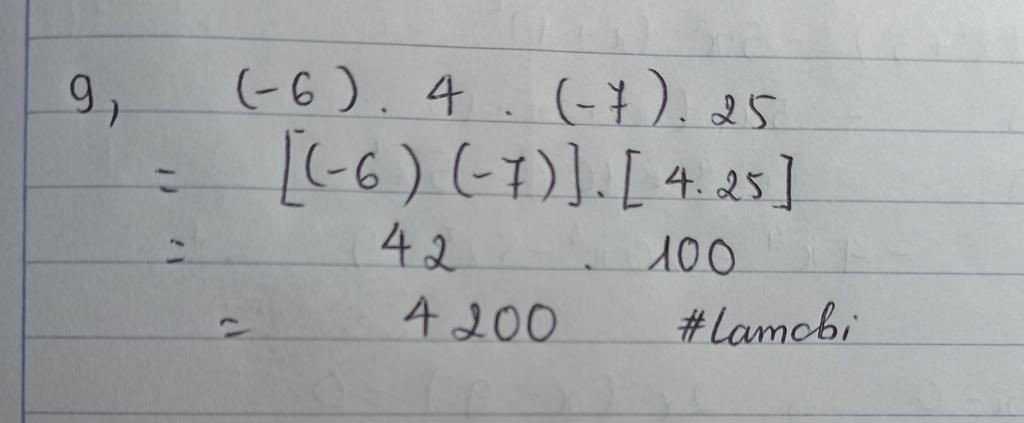 9, (-6) . 4 . (-7) . 25
= [(-6) (-7)] . [4.25]
= 42 . 100
= 4200 #Lamobi